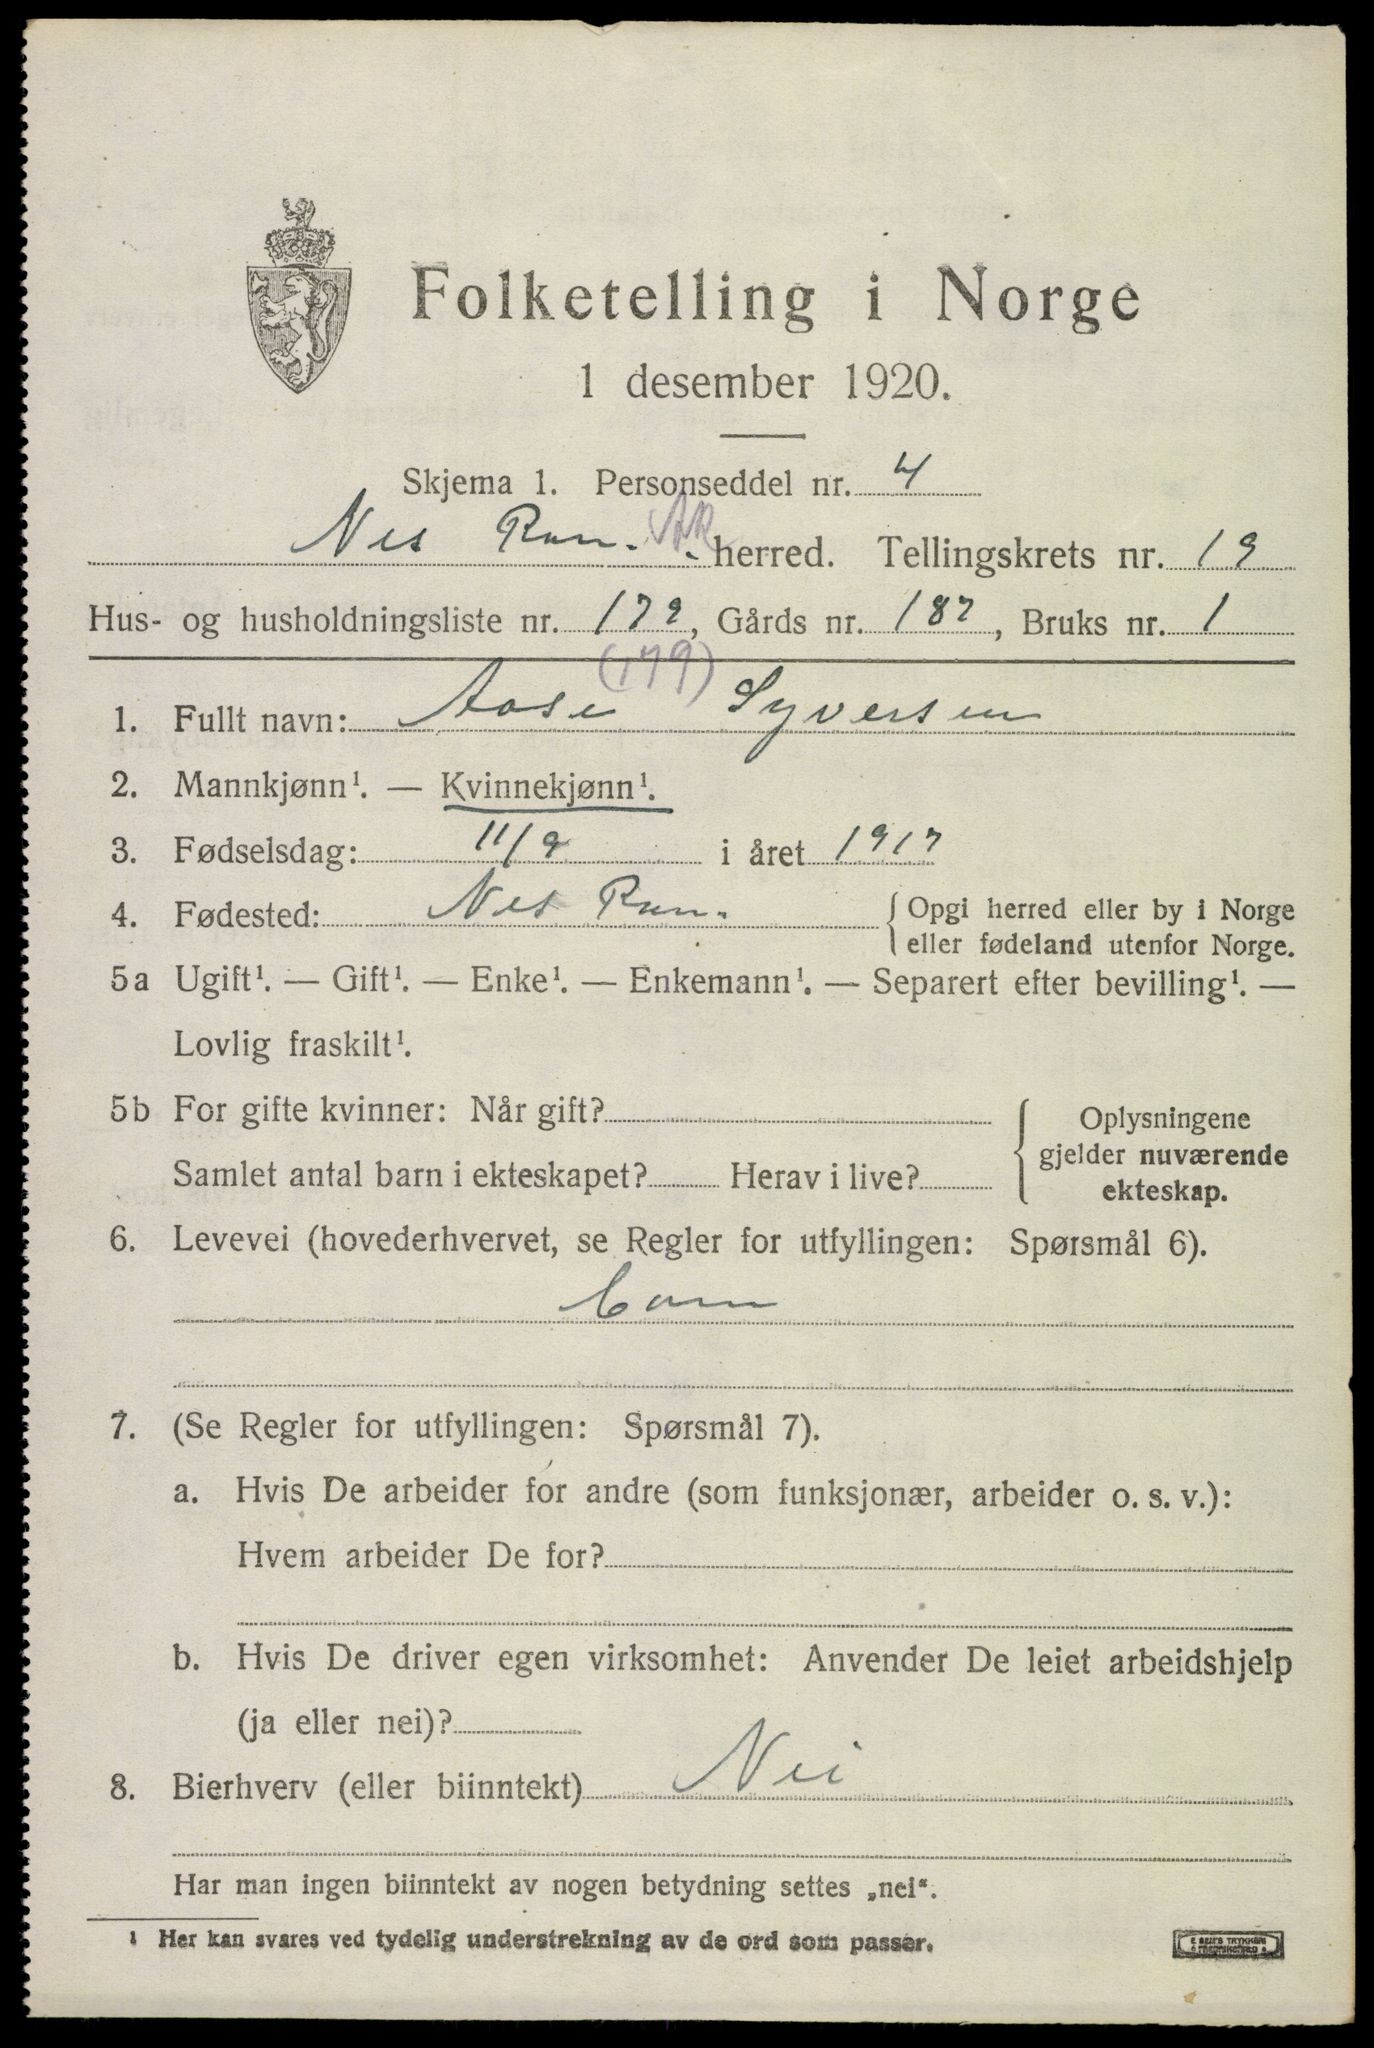 Folketelling i Norge
1 desember 1920.
Skjema 1. Personseddel nr. 4
Nes Rom. AR herred. Tellingskrets nr. 19
Hus- og husholdningsliste nr. 179, Gårds nr. 187, Bruks nr. 1
(179)
1. Fullt navn: Aase Syversen
2. Mannkjønn¹. — Kvinnekjønn¹.
3. Fødselsdag: 11/9 i året 1917
4. Fødested: Nes Rom. { Opgi herred eller by i Norge
eller fødeland utenfor Norge.
5a Ugift¹. — Gift¹. — Enke¹. — Enkemann¹. — Separert efter bevilling¹. —
Lovlig fraskilt¹.
5b For gifte kvinner: Når gift? { Oplysningene
gjelder nuværende
Samlet antal barn i ekteskapet? Herav i live? ekteskap.
6. Levevei (hovederhvervet, se Regler for utfyllingen: Spørsmål 6).
7. (Se Regler for utfyllingen: Spørsmål 7).
a. Hvis De arbeider for andre (som funksjonær, arbeider o. s. v.):
Hvem arbeider De for?
b. Hvis De driver egen virksomhet: Anvender De leiet arbeidshjelp
(ja eller nei)?
8. Bierhverv (eller biinntekt) Nei
Har man ingen biinntekt av nogen betydning settes „nei".
¹ Her kan svares ved tydelig understrekning av de ord som passer.